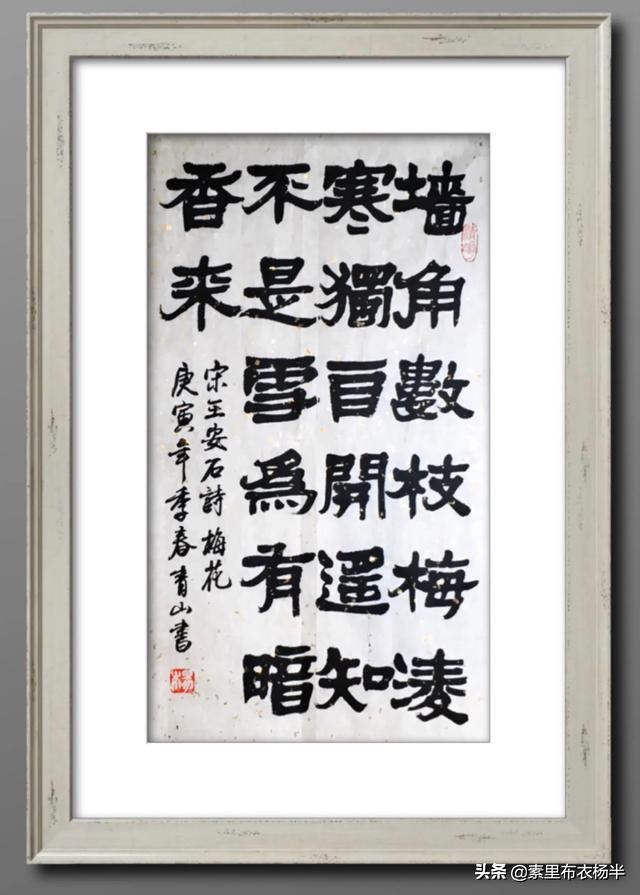 墙角數枝梅凌
寒獨自開遥知
不是雪為有暗
香来
宋王安石詩梅花
庚寅年季春青山書
头条 @素里布衣杨半